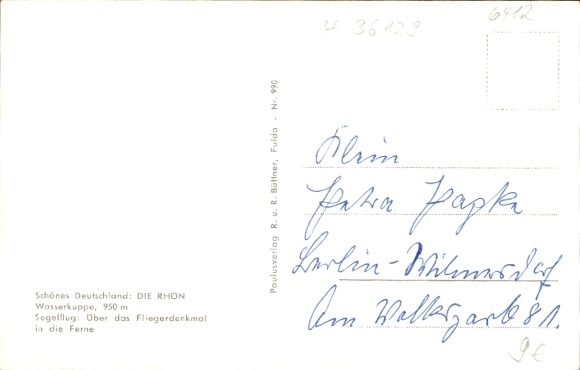 H 36129
6412
Paulusverlag R. u. R. Büttner, Fulda - Nr. 990
Klein
Petra Papke
Berlin-Wilmersdorf
Am Volkspark 81.
Schönes Deutschland: DIE RHÖN
Wasserkuppe, 950 m
Segelflug: Über das Fliegerdenkmal
in die Ferne
9€